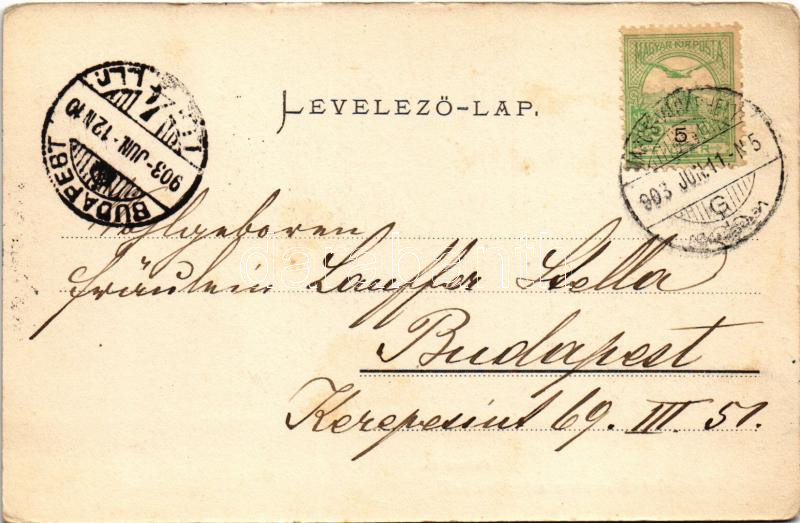 LEVELEZŐ-LAP.
MAGYAR KIR. POSTA
5
BUDAPEST
903-JUN.-12 N 10
903 JUN. 11. N 5
Wohlgeboren
Fräulein Lauffer Stella
Budapest
Kerepesiut 69. III. 51.